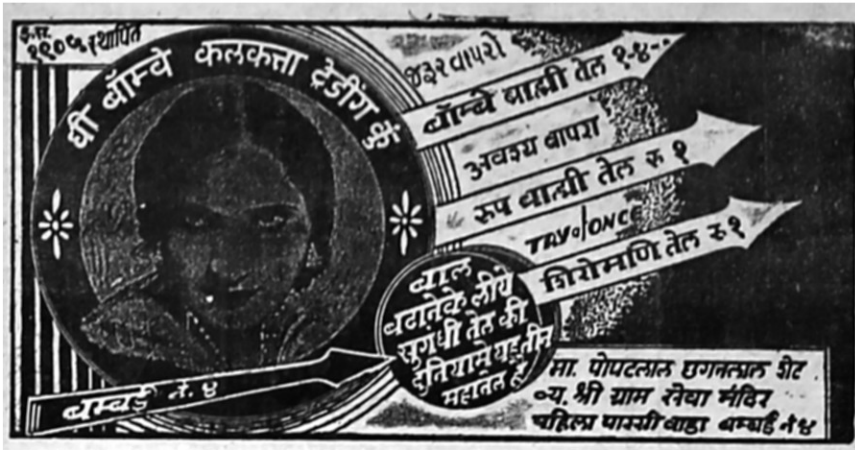 इ.स.
१९०५ स्थापित
धी बॉम्बे कलकत्ता ट्रेडींग कुं
જરૂર વાપરો
बॉम्बे ब्राह्मी तेल १-४-०
अवश्य वापरा
रुप ब्राह्मी तेल रु १
TRY ONCE
शिरोमणि तेल रु १
बाल
बढानेके लीये
सुगंधी तेल की
दुनियामे यह तीन
महातेल है
बम्बई नं. ४
मा. पोपटलाल छगनलाल शेट
व्य. श्री ग्राम सेवा मंदिर
पहिला पारसी वाडा बम्बई नं ४